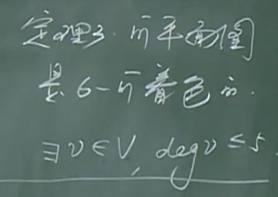 定理3. 可平面图
是6-可着色的.
∃v∈V, deg v ≤ 5.